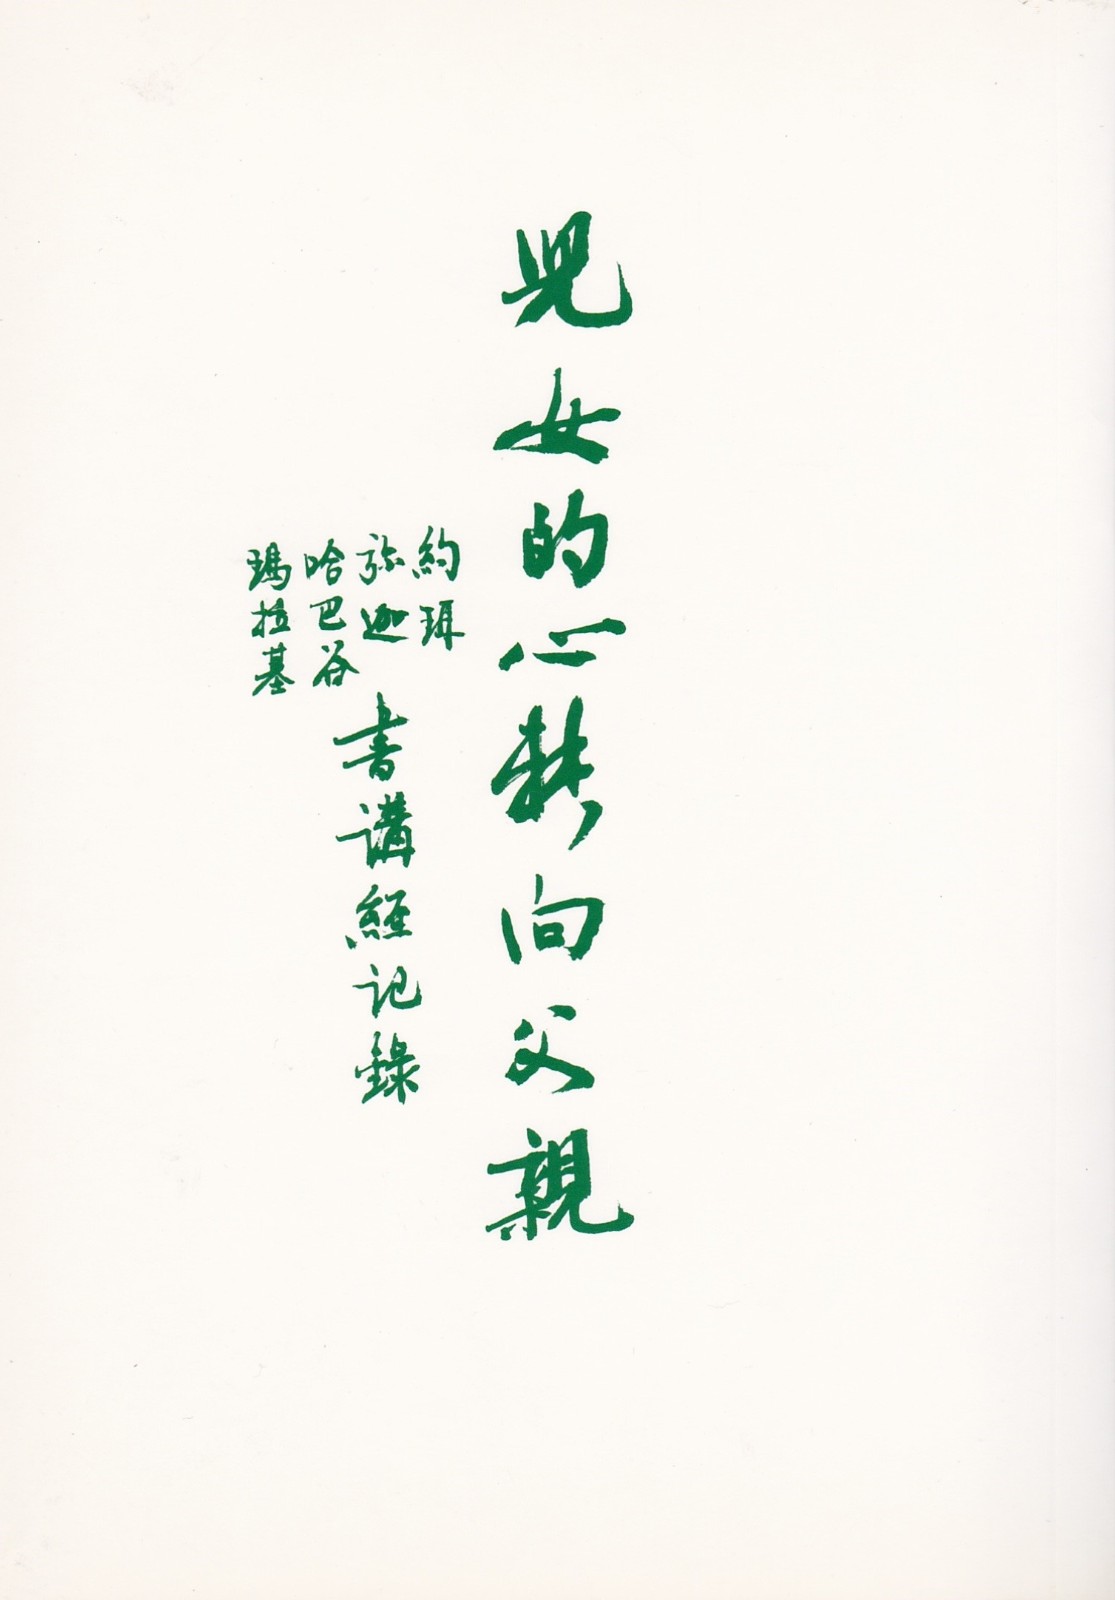 兒女的心轉向父親
約珥
弥迦
哈巴谷
瑪拉基
書講經記錄